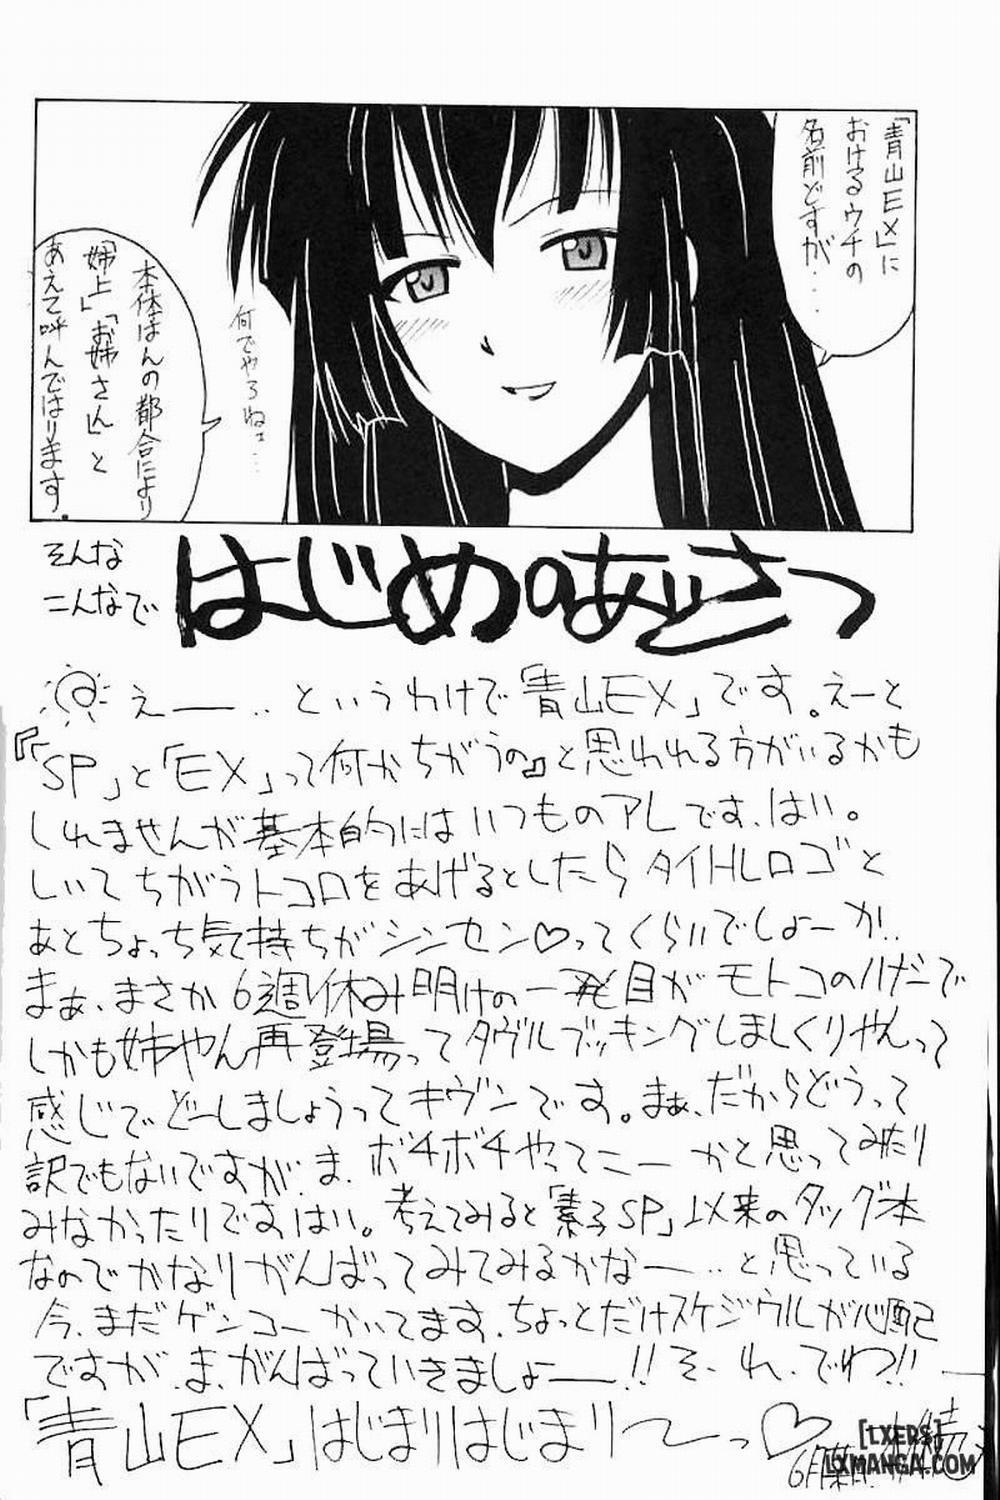 「青山EX」に
おけるウチの
名前どすが・・・
何でやろねェ…
本体はんの都合により
「姉上」「お姉さん」と
あえて呼んではります。
そんな
こんなで
はじめのあいさつ
えー ‥というわけで「青山EX」です。えーと
『「SP」と「EX」って何かちがうの』と思われる方がいるかも
しれませんが基本的にはいつものアレです、はい。
しいてちがうトコロをあげるとしたらタイトルロゴと
あとちょっち気持ちがシンセン♡ってくらいでしょーか‥
まぁ、まさか6週休み明けの一発目がモトコのハナシで
しかも姉やん再登場ってダヴルブッキングしましくりやんって
感じで、どーしましょうってキヴンです。まぁ、だからどうって
訳でもないですが、ま、ボチボチやってこーかと思ってみたり
みなかったりですはい。考えてみると「素子SP」以来のタッグ本
なのでかなりがんばってみてみるかなー‥と思っている
今、まだゲンコーかいてます。ちょっとだけスケジウルが心配
ですが、ま、がんばっていきましょー!! そ、れ、でわ!!
「青山EX」はじまりはじまり〜っ♡
[LXERS]
LXMANGA.COM